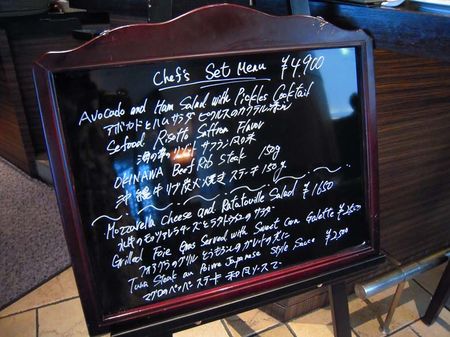 Chef's Set Menu ¥4,900
Avocado and Ham Salad with Pickles Cocktail
アボカドとハムサラダ ピクルスのカクテル添え
Sefood Risotto Saffron Flavor
海の幸のリゾット サフラン風味
OKINAWA Beef Rib Steak 150g
沖縄牛リブ炭火焼きステーキ 150g
Mozzarella Cheese and Ratatouille Salad ¥1650
モッツァレラチーズとラタトゥイユのサラダ
Grilled Foie Gras Served with Sweet Corn Galette
フォアグラのグリル とうもろこしのガレットと共に
Tuna Steak au Poivre Japanese Style Sauce
マグロのペッパーステーキ 和風ソースで